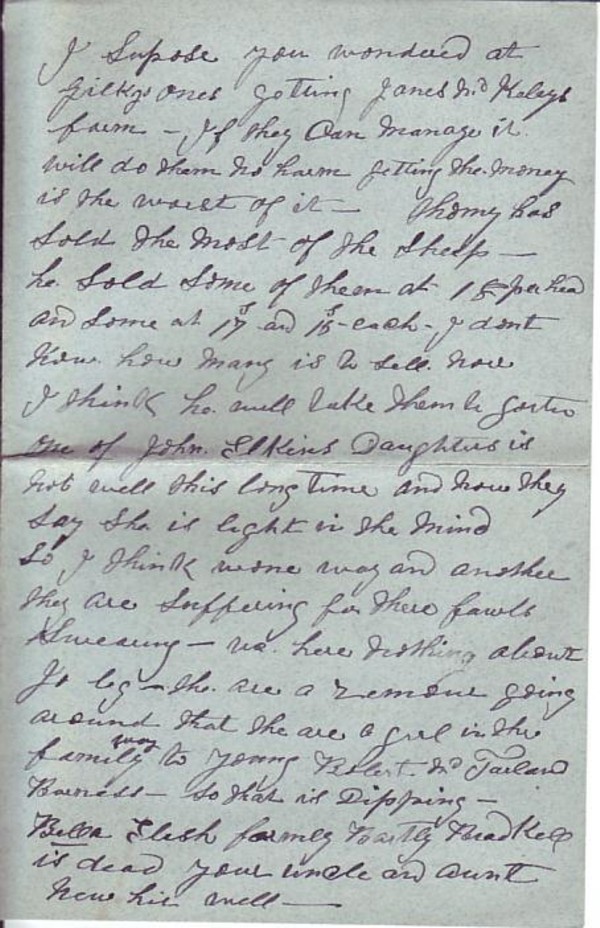 I Supose you wondered at
getting James Mc Keleys
farm - If they Can Manage it
will do them no harm getting the money
is the worst of it - Thomy has
Sold the Most of the Sheep -
he Sold Some of them at 18/ per head
an Some at 17s and 15s each - I dont
know how many is to sell now
I think he will take them to
one of John Elkins Daughters is
not well this long time and now they
Say She is light in the Mind
So I think wone way and another
they are Suffering for there fawls
Swearing - we here nothing about
leg - the are a remour going
around that the are a girl in the
family way to young Robert Mc
- so that is Dipping -
Bella
is dead your uncle an aunt
well -